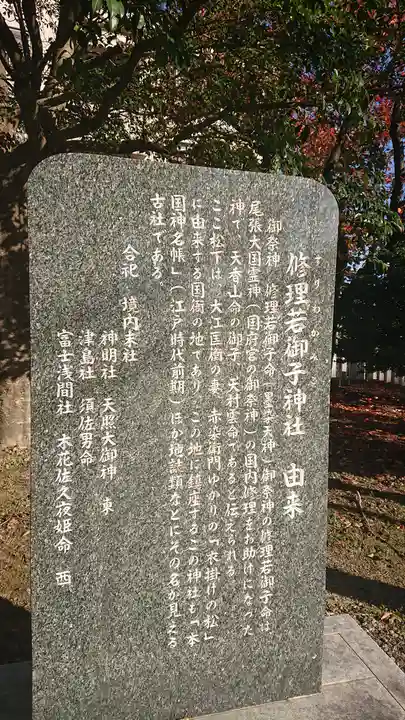 修理若御子神社 由来
すりわかみこ
御祭神 修理若御子命(里空王神)御祭神の修理若御子命は、
尾張大国霊神(国府宮の御祭神)の国内修理をお助けになった
神で、天香山命の御子、天村雲命であると伝えられる。
ここ松下は、大江匡衡の妻、赤染衛門ゆかりの「衣掛けの松」
に由来する国衙の地であり、この地に鎮座するこの神社も「本
国神名帳」(江戸時代前期)ほか地誌類などにその名が見える
古社である。
合祀 境内末社
神明社 天照大御神 東
津島社 須佐男命
富士浅間社 木花佐久夜姫命 西